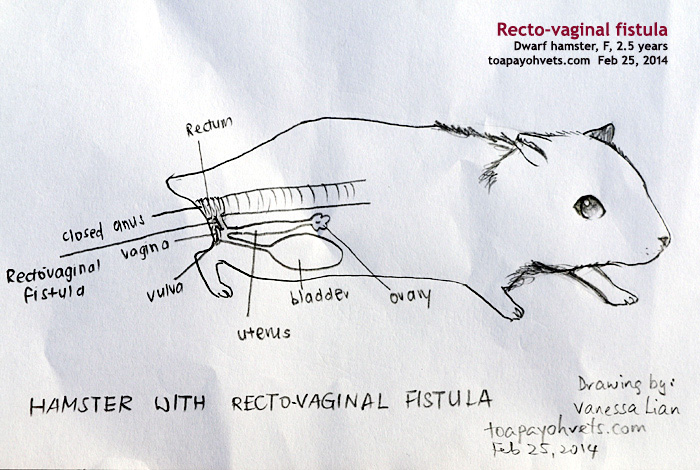 Recto-vaginal fistula
Dwarf hamster, F, 2.5 years
toapayohvets.com Feb 25, 2014
Rectum
closed anus
Rectovaginal
fistula
vagina
vulva
uterus
bladder
ovary
HAMSTER WITH RECTO-VAGINAL FISTULA
Drawing by:
Vanessa Lian
toapayohvets.com
Feb 25, 2014